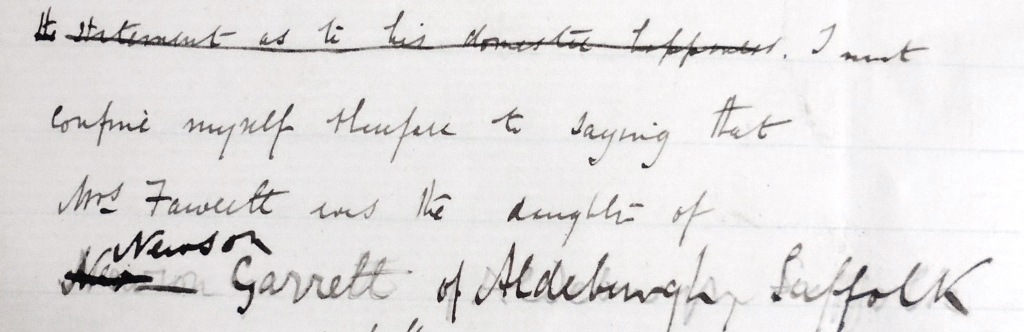 the statement as to his domestic happiness. I must
confine myself therefore to saying that
Mrs Fawcett was the daughter of
Newson
Garrett of Aldeburgh, Suffolk